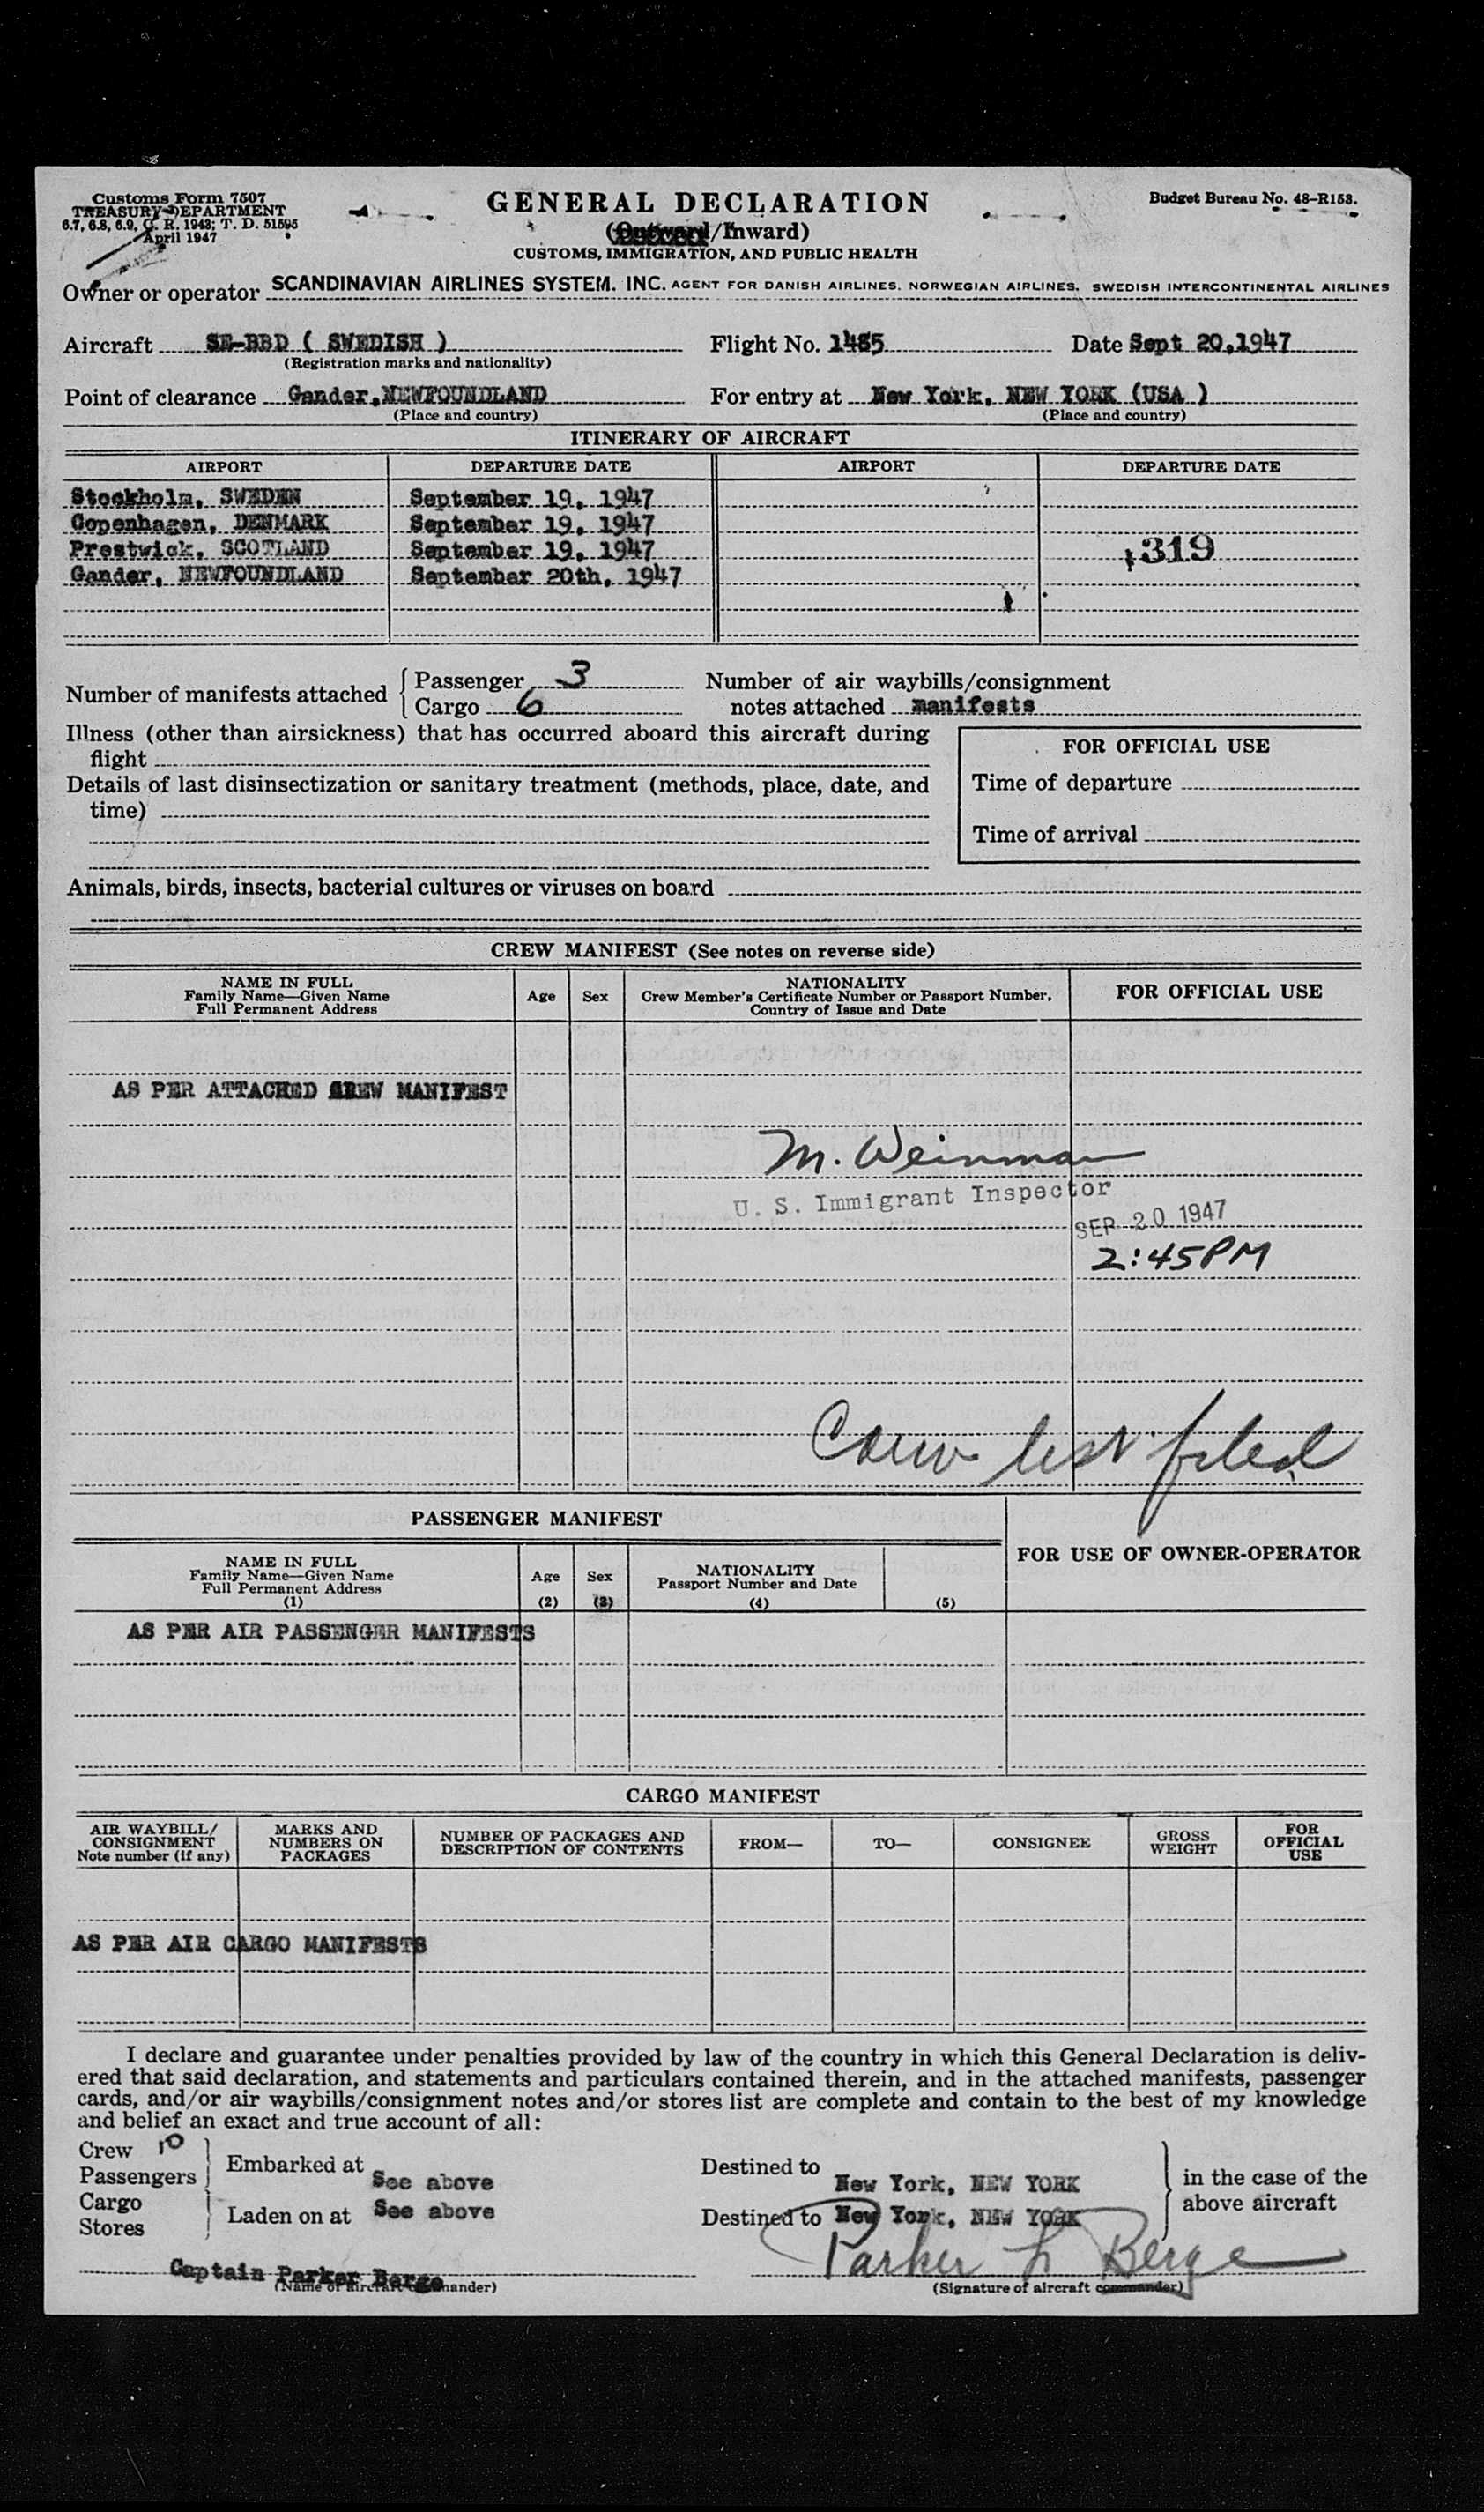 Customs Form 7507
TREASURY DEPARTMENT
6.7, 6.8, 6.9, C. R. 1943; T. D. 51595
April 1947
GENERAL DECLARATION
(Outward/Inward)
CUSTOMS, IMMIGRATION, AND PUBLIC HEALTH
Budget Bureau No. 48-R153.
Owner or operator SCANDINAVIAN AIRLINES SYSTEM. INC. AGENT FOR DANISH AIRLINES. NORWEGIAN AIRLINES. SWEDISH INTERCONTINENTAL AIRLINES
Aircraft SE-BBD ( SWEDISH ) Flight No. 1485 Date Sept 20,1947
(Registration marks and nationality)
Point of clearance Gander,NEWFOUNDLAND For entry at New York, NEW YORK (USA )
(Place and country) (Place and country)
ITINERARY OF AIRCRAFT
AIRPORT DEPARTURE DATE AIRPORT DEPARTURE DATE
Stockholm, SWEDEN September 19, 1947
Copenhagen, DENMARK September 19, 1947
Prestwick, SCOTLAND September 19, 1947 319
Gander, NEWFOUNDLAND September 20th, 1947
Number of manifests attached { Passenger 3
Cargo 6
Number of air waybills/consignment
notes attached manifests
Illness (other than airsickness) that has occurred aboard this aircraft during
flight
Details of last disinsectization or sanitary treatment (methods, place, date, and
time)
FOR OFFICIAL USE
Time of departure
Time of arrival
Animals, birds, insects, bacterial cultures or viruses on board
CREW MANIFEST (See notes on reverse side)
NAME IN FULL
Family Name—Given Name
Full Permanent Address
Age
Sex
NATIONALITY
Crew Member's Certificate Number or Passport Number,
Country of Issue and Date
FOR OFFICIAL USE
AS PER ATTACHED CREW MANIFEST
M. Weinman
U. S. Immigrant Inspector
SEP 20 1947
2:45PM
Crew list filed
PASSENGER MANIFEST
FOR USE OF OWNER-OPERATOR
NAME IN FULL
Family Name—Given Name
Full Permanent Address
(1)
Age
(2)
Sex
(3)
NATIONALITY
Passport Number and Date
(4)
(5)
AS PER AIR PASSENGER MANIFESTS
CARGO MANIFEST
AIR WAYBILL/
CONSIGNMENT
Note number (if any)
MARKS AND
NUMBERS ON
PACKAGES
NUMBER OF PACKAGES AND
DESCRIPTION OF CONTENTS
FROM—
TO—
CONSIGNEE
GROSS
WEIGHT
FOR
OFFICIAL
USE
AS PER AIR CARGO MANIFESTS
I declare and guarantee under penalties provided by law of the country in which this General Declaration is deliv-
ered that said declaration, and statements and particulars contained therein, and in the attached manifests, passenger
cards, and/or air waybills/consignment notes and/or stores list are complete and contain to the best of my knowledge
and belief an exact and true account of all:
Crew 10
Passengers
Embarked at See above
Destined to New York, NEW YORK
Cargo
Stores
Laden on at See above
Destined to New York, NEW YORK
in the case of the
above aircraft
Captain Parker Berge
(Name of aircraft commander)
Parker L Berge
(Signature of aircraft commander)